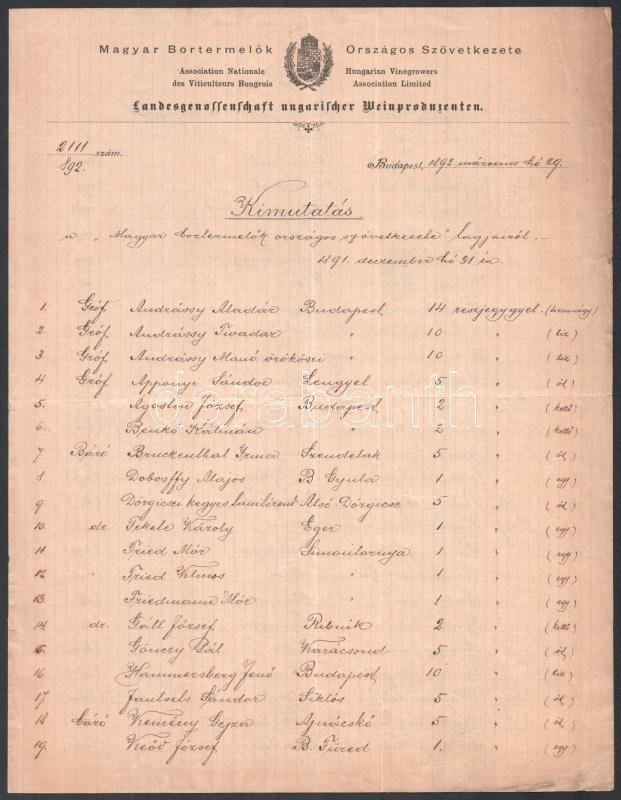 Magyar Bortermelők Országos Szövetkezete
Association Nationale des Viticulteurs Hongrois
Hungarian Vinegrowers Association Limited
Landesgenossenschaft ungarischer Weinproduzenten.
2111 szám.
892.
Budapest, 1892 március hó 29.
Kimutatás
a „Magyar bortermelők országos szövetkezete" tagjairól.
1891. deczember hó 31 én
1. Gróf Andrássy Aladár Budapest 14 részjegygyel. (tizennégy)
2. Gróf Andrássy Tivadar " 10 " (tíz)
3. Gróf Andrássy Manó örökösei " 10 " (tíz)
4. Gróf Apponyi Sándor Lengyel 5 " (öt)
5. Ágoston József Budapest 2 " (kettő)
6. Benkó Kálmán " 2 " (kettő)
7 Báró Bruckenthal Irma Szendelak 5 " (öt)
8 Dobosffy Alajos B Gyula 1 " (egy)
9 Dörgicsei kegyes tanítórend Alsó-Dörgicse 5 " (öt)
10. dr. Fekete Károly Eger 1 " (egy)
11. Fried Mór Simontornya 1 " (egy)
12 Fried Vilmos " 1 " (egy)
13. Friedmann Mór " 1 " (egy)
14. dr. Gáll József Ribnik 2. " (kettő)
15. Gönczy Pál Karácsond 5 " (öt)
16. Hammersberg Jenő Budapest 10 " (tíz)
17 Sándor Siklós 5 " (öt)
18 báró Kemény Gejza Ajnácskő 5 " (öt)
19. József B. Füred 1. " (egy)
darabanth